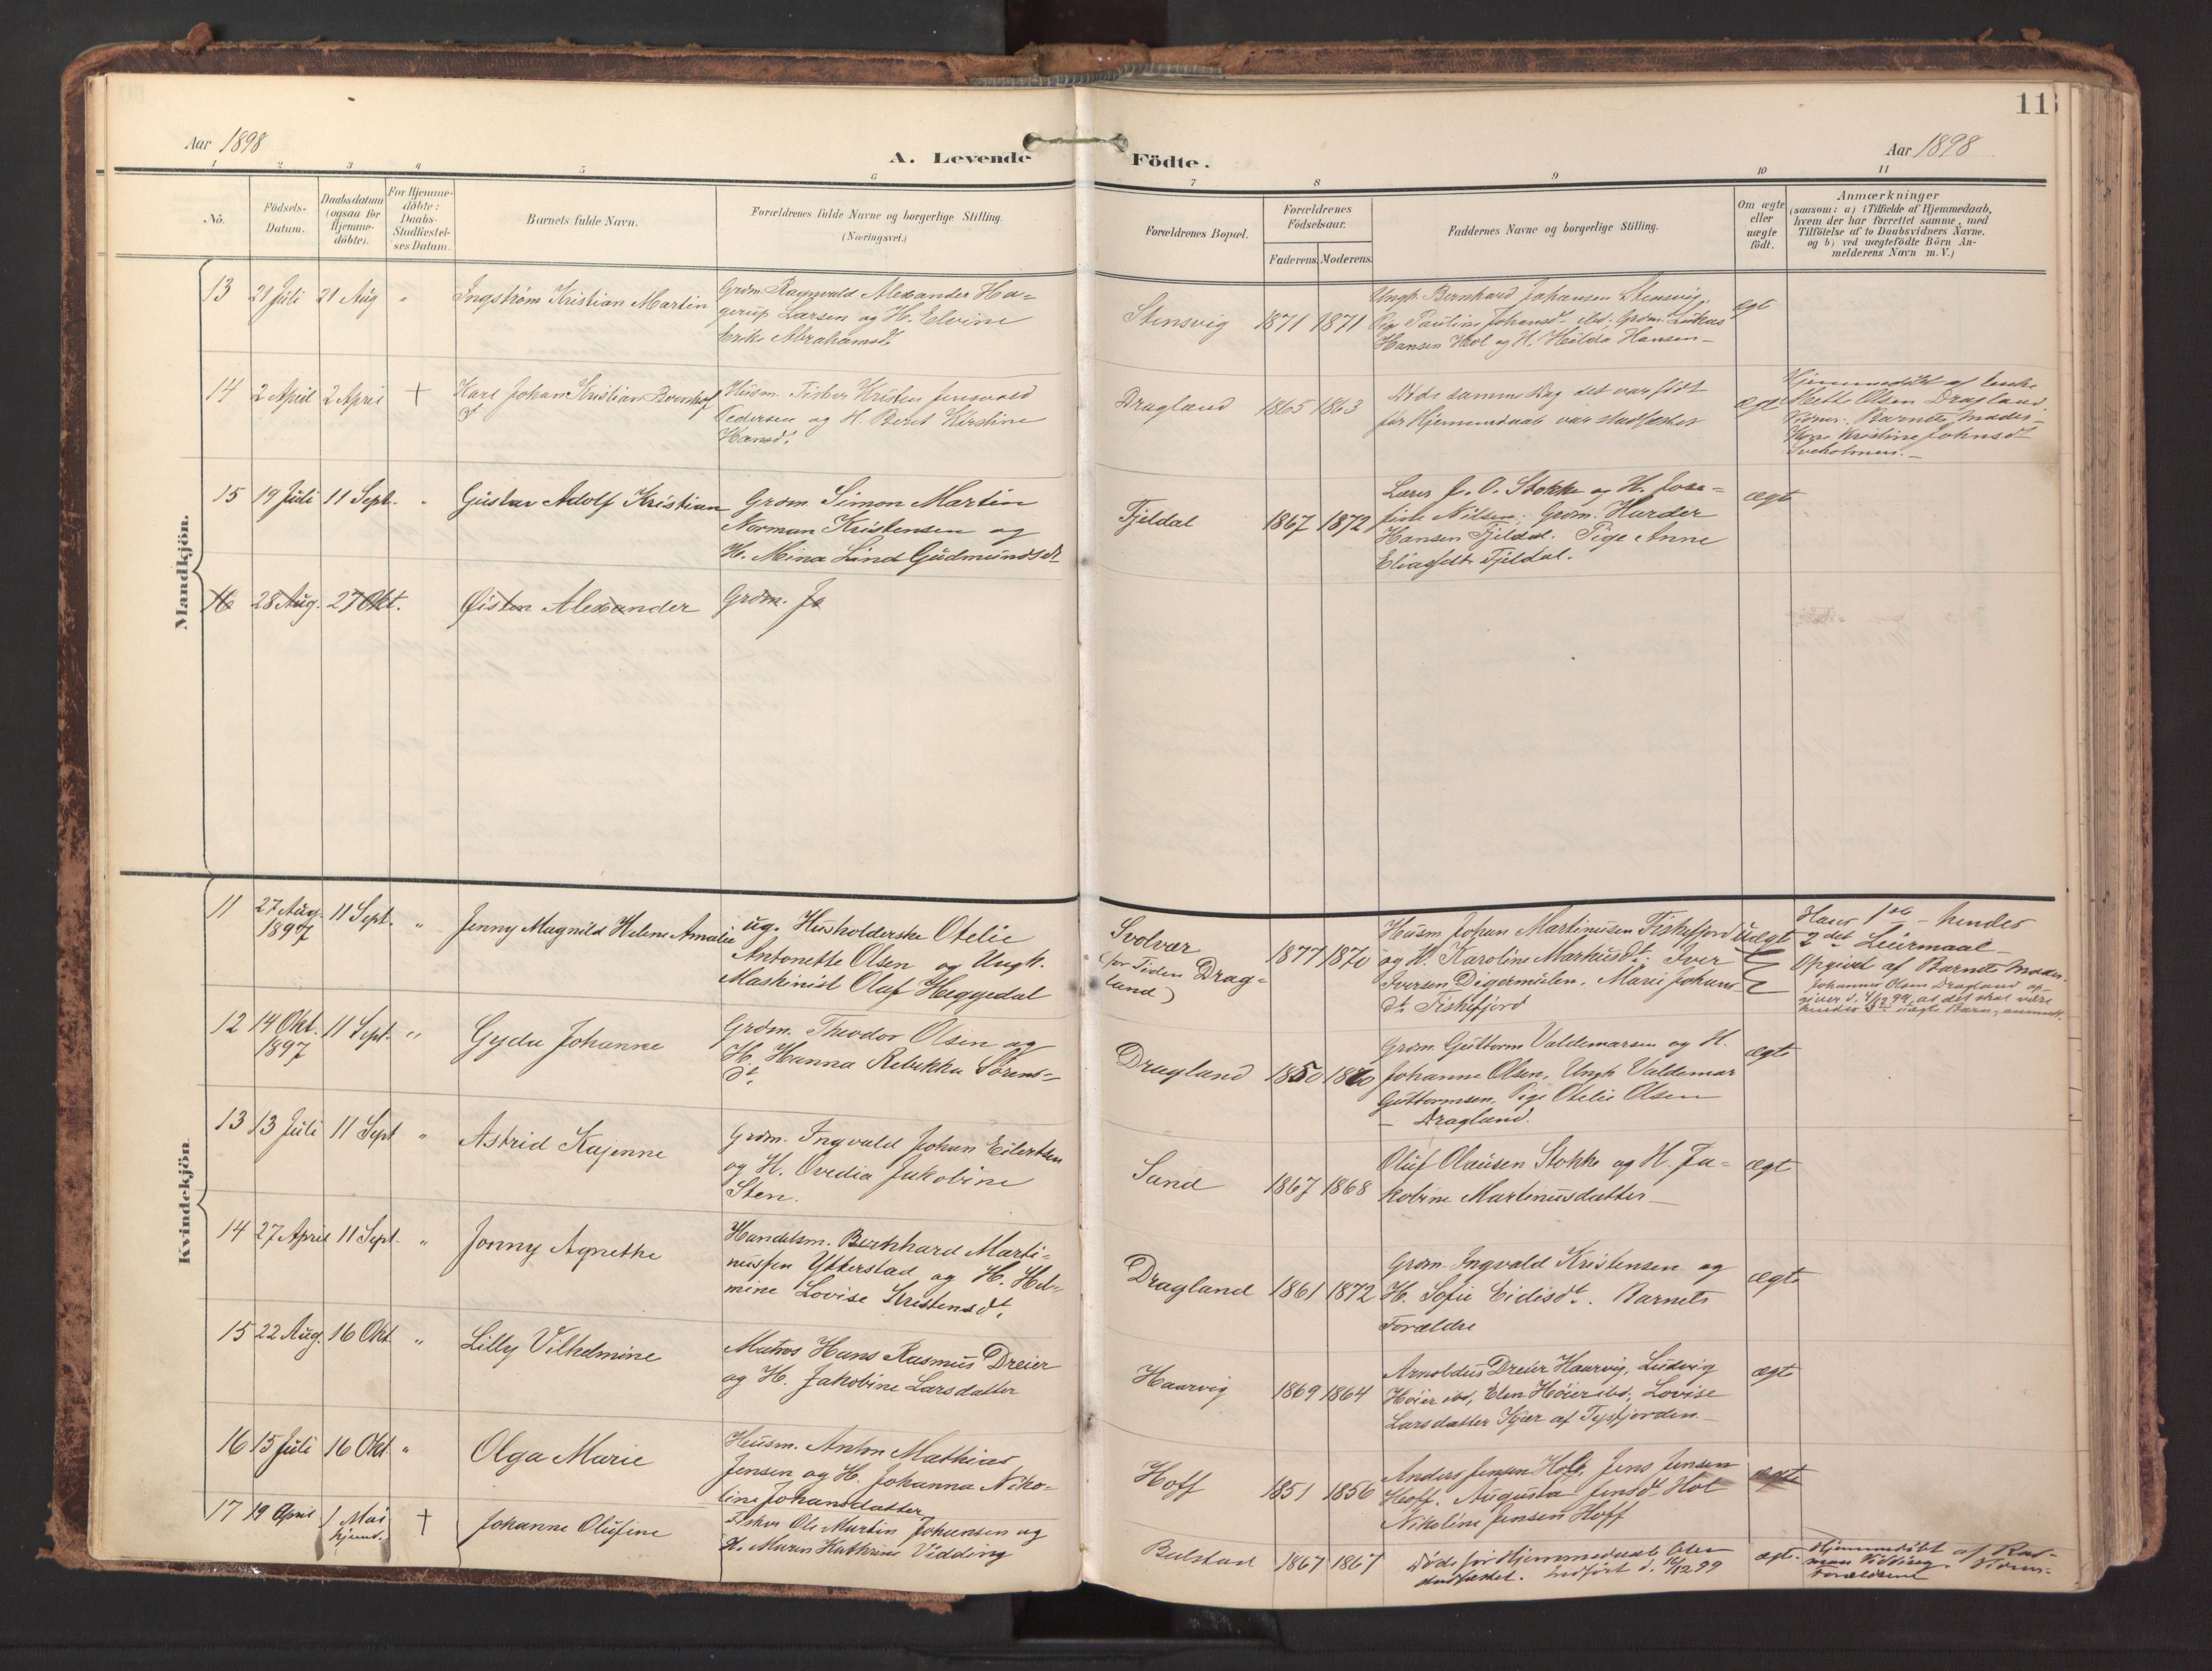 11
Aar 1898
A. Levende Födte.
Aar 1898
1 2 3 4 5 6 7 8 9 10 11
No.
Födsels-
Datum.
Daabsdatum
(ogsaa for
Hjemme-
döbte).
For Hjemme-
döbte:
Daabs-
Stadfæstel-
ses Datum.
Barnets fulde Navn.
Forældrenes fulde Navne og borgerlige Stilling.
(Næringsvei.)
Forældrenes Bopæl.
Forældrenes
Födselsaar.
Faderens. Moderens.
Faddernes Navne og borgerlige Stilling.
Om ægte
eller
uægte
födt.
Anmærkninger
(saasom: a) i Tilfælde af Hjemmedaab,
hvem der har forrettet samme, med
Tilföielse af to Daabsvidners Navne,
og b) ved uægtefödte Börn An-
melderens Navn m. V.)
Mandkjön.
13 21 Juli 21 Aug "
Ingstrøm Kristian Martin
Grdm. Ragnvald Alexander Ha-
gerup Larsen og H. Elvine
Erike Abrahamsd.
Stensvig
1871 1871
Ungk. Bernhard Johansen Stensvig,
Pige Pauline Johansdt. ibd. Grdm. Lukas
Hansen Hol og H. Hilda Hansen -
egt
14 2 April 2 April +
Karl Johan Kristian Bernhof
dt
Husm. Fisker Kristen Jensvold
Pedersen og H. Berit Kirstine
Hansd.
Dragland
1865 1863
Døde samme Dag det var født
før Hjemmedaab var stadfæstet
egt
Hjemmedøbt af
Mette Olsen Dragland.
Vidner: Barnets Moder -
Kone Kristine Johnsdt
15 19 Juli 11 Sept. "
Gustav Adolf Kristian
Grdm Simon Martin
Norman Kristensen og
H. Mina Lind Gudmundsdt
Fjeldal
1867 1872
Lærer J. O. Stokke og H. Jose-
fine Nilsen. Grdm. Harder
Hansen Fjeldal. Pige Anne
Eliasdt. Fjeldal.
ægt
16 28 Aug. 27 Okt.
Øisten Alexander
Grdm. Jo
Kvindekjön
11 27 Aug. 1897 11 Sept. "
Jenny Magnild Helene Amalie
ug. Husholderske Otelie
Antonette Olsen og Ungk.
Maskinist Olaf Heggedal
Svolvær
(for Tiden Drag-
land)
1877 1870
Husm Johan Martinusen Fiskefjord
og H. Karoline Markusdt. Iver
Iversen Digermulen. Marie Johans
dt. Fiskefjord
uægt
Hans 1ste - hendes
2det Leiermaal -
Opgivet af Barnets Moder.
Johannes Olsen Dragland op-
giver d. 4/12 99 at det skal være
hendes 3die uægte Barn,
12 14 Okt. 1897 11 Sept. "
Gyda Johanne
Grdm. Theodor Olsen og
H. Hanna Rebekka Sørens-
dt.
Dragland
1850 1870
Grdm. Guttorm Valdemarsen og H.
Johanne Olsen, Ungk Valdemar
Guttormsen, Pige Otelie Olsen
- Dragland.
ægte
13 13 Juli 11 Sept "
Astrid Kajenne
Grdm. Ingvald Johan Eilertsen
og H. Ovedia Jakobine
Sten.
Sand
1867 1868
Oluf Olausen Stokke og H. Ja-
kobine Martinusdatter -
ægt
14 27 April 11 Sept. "
Jonny Agnethe
Handelsm. Bernhard Marti-
nussen Ytterstad og H. Hel-
mine Lovise Kristensdt.
Dragland
1861 1872
Grdm. Ingvald Kristensen og
H. Sofie Eidisdt. Barnets
Forældre
ægte
15 22 Aug. 16 Okt. "
Lilly Vilhelmine
Matros Hans Rasmus Dreier
og H. Jakobine Larsdatter
Haarvig
1869 1864
Arnoldus Dreier Haarvig, Ludvig
Høier ibd, Elen Høier ibd. Lovise
Larsdatter Kjær af Tysfjorden -
ægt
16 15 Juli 16 Okt. "
Olga Marie
Husm. Anton Mathias
Jensen og H. Johanna Niko-
line Johansdatter
Hoff
1851 1856
Anders Jensen Hol, Jens Jensen
Hoff. Augusta Jensdt Hol
Nikoline Jensen Hoff
ægte
17 19 April 1 Mai +
hjemd.
Johanne Olufine
Fisker Ole Martin Johansen og
H. Maren Kathrine Vidding
Balstad
1867 1867
Døde før Hjemmedaaben blev
stadfæstet. Indført d. 16/12 99
ægt.
Hjemmedøbt af Ras-
mus Vidding. Vidner:
Forældrene